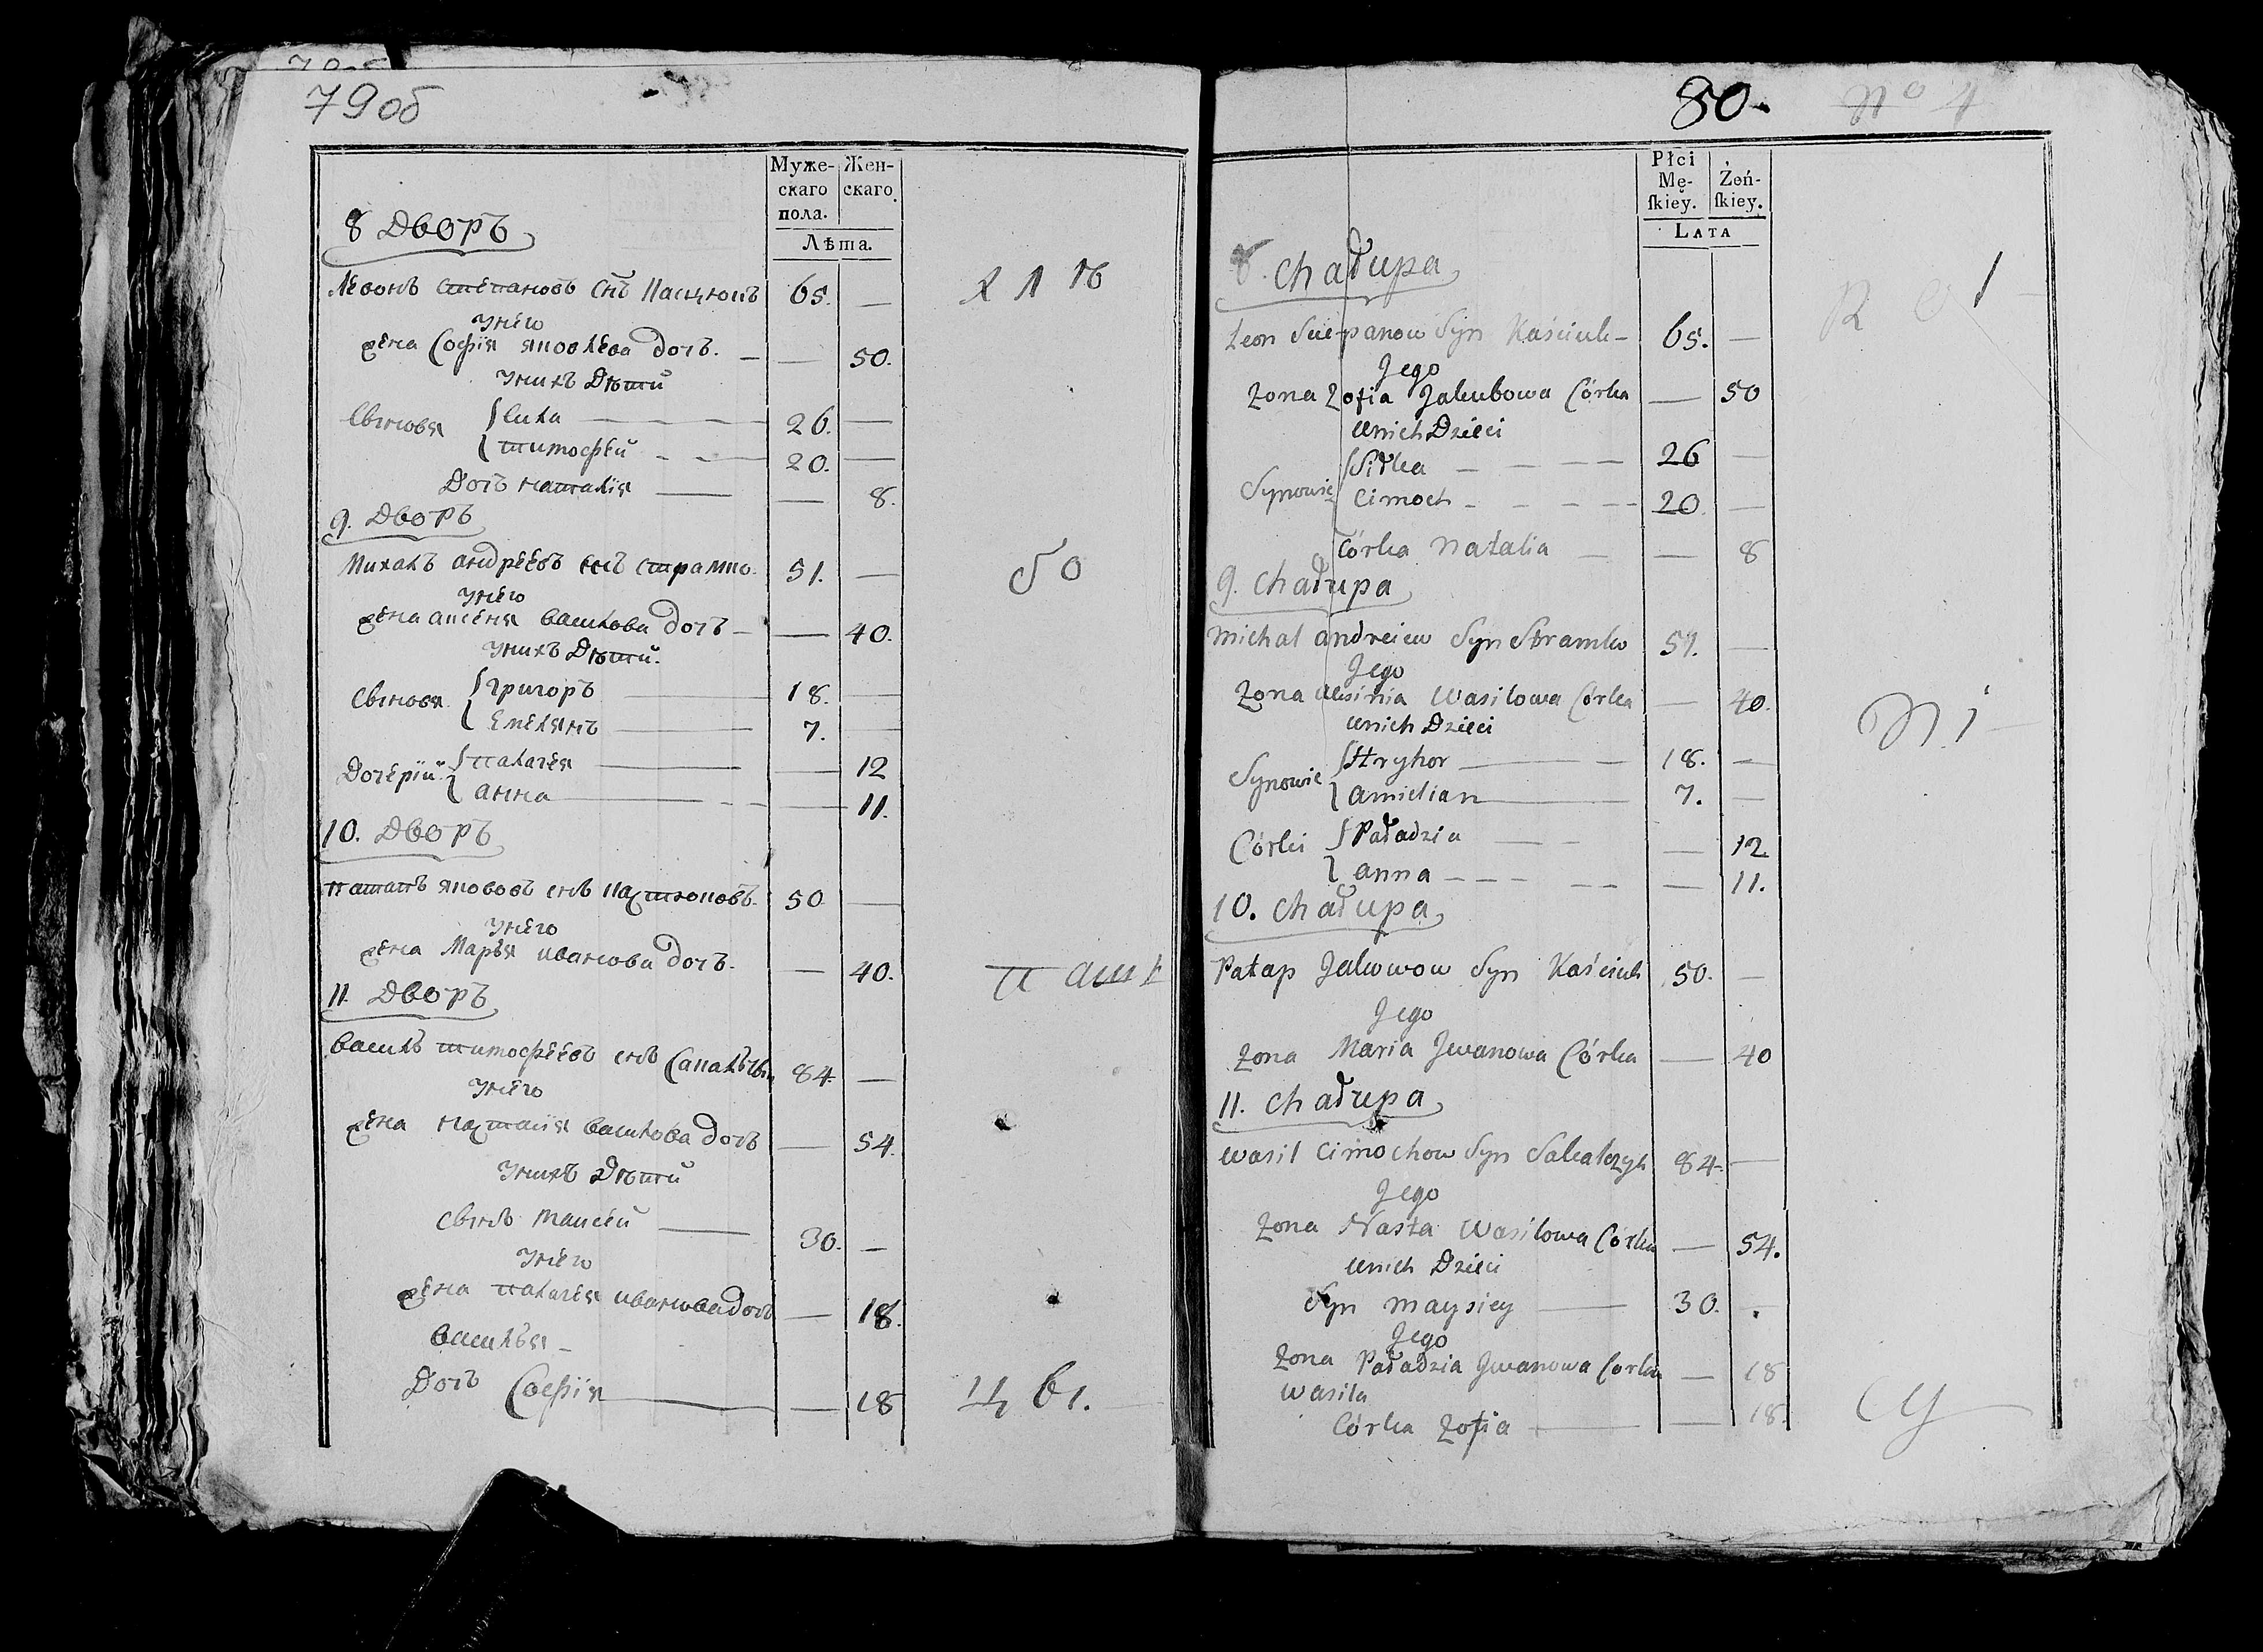 79об
Муже-
скаго
пола.
Жен-
скаго.
Лѣта.
8 Дворъ
Левонъ Степановъ Снъ Касцюкъ 65. —
Унего
жена Софія яковлева дочь. — — 50.
Унихъ Дѣти
Сыновя { Сила — 26. —
{ тимофѣй — 20. —
Дочь наталія — — 8.
9. Дворъ
Михалъ андрѣевъ снъ страмко. 51. —
Унего
жена аксеня василова дочь — — 40.
Унихъ Дѣти.
Сыновя { григоръ — 18. —
{ Емелянъ — 7. —
Дочерїи { палагея — — 12
{ анна — — 11.
10. Дворъ
патапъ якововъ снъ Кастюковъ. 50 —
Унего
жена Марья иванова дочь. — 40.
11. Дворъ
Василь тимофѣевъ снъ 84. —
Унего
жена настасія василова дочь — 54.
Унихъ Дѣти
Сынъ Мансей — 30. —
Унего
жена палагея иванова дочь — 18.
Василья —
Дочь Софія — — 18
бо
цы.
80.
nº 4
Płci
Mę-
ſkiey.
Żeń-
ſkiey.
Lata
8. Chałupa
Leon Sciepanow Syn Kaściuk — 65. —
Jego
Żona Zofia Jakubowa Córka — 50
Unich Dzieci
Synowie { Siłka — 26 —
Cimoch — 20 —
Córka Natalia — — 8
9. Chałupa
Michał andreiew Syn Stramko 51. —
Jego
Żona aksinia Wasilowa Córka — 40.
Unich Dzieci
Synowie { Hryhor — 18. —
{ amielian — 7. —
Córki { Paładzia — — 12
{ anna — — 11.
10. Chałupa
Patap Jakowow Syn Kaściuk 50. —
Jego
Żona Maria Jwanowa Córka — 40
11. Chałupa
Wasil Cimochow Syn Sakalczyk 84. —
Jego
Żona Nasta Wasilowa Córka — 54.
Unich Dzieci
Syn Maysiey — 30. .
Jego
Żona Paładzia Jwanowa Corka — 18
Wasila
Córka Zofia — — 18.
ni
cy